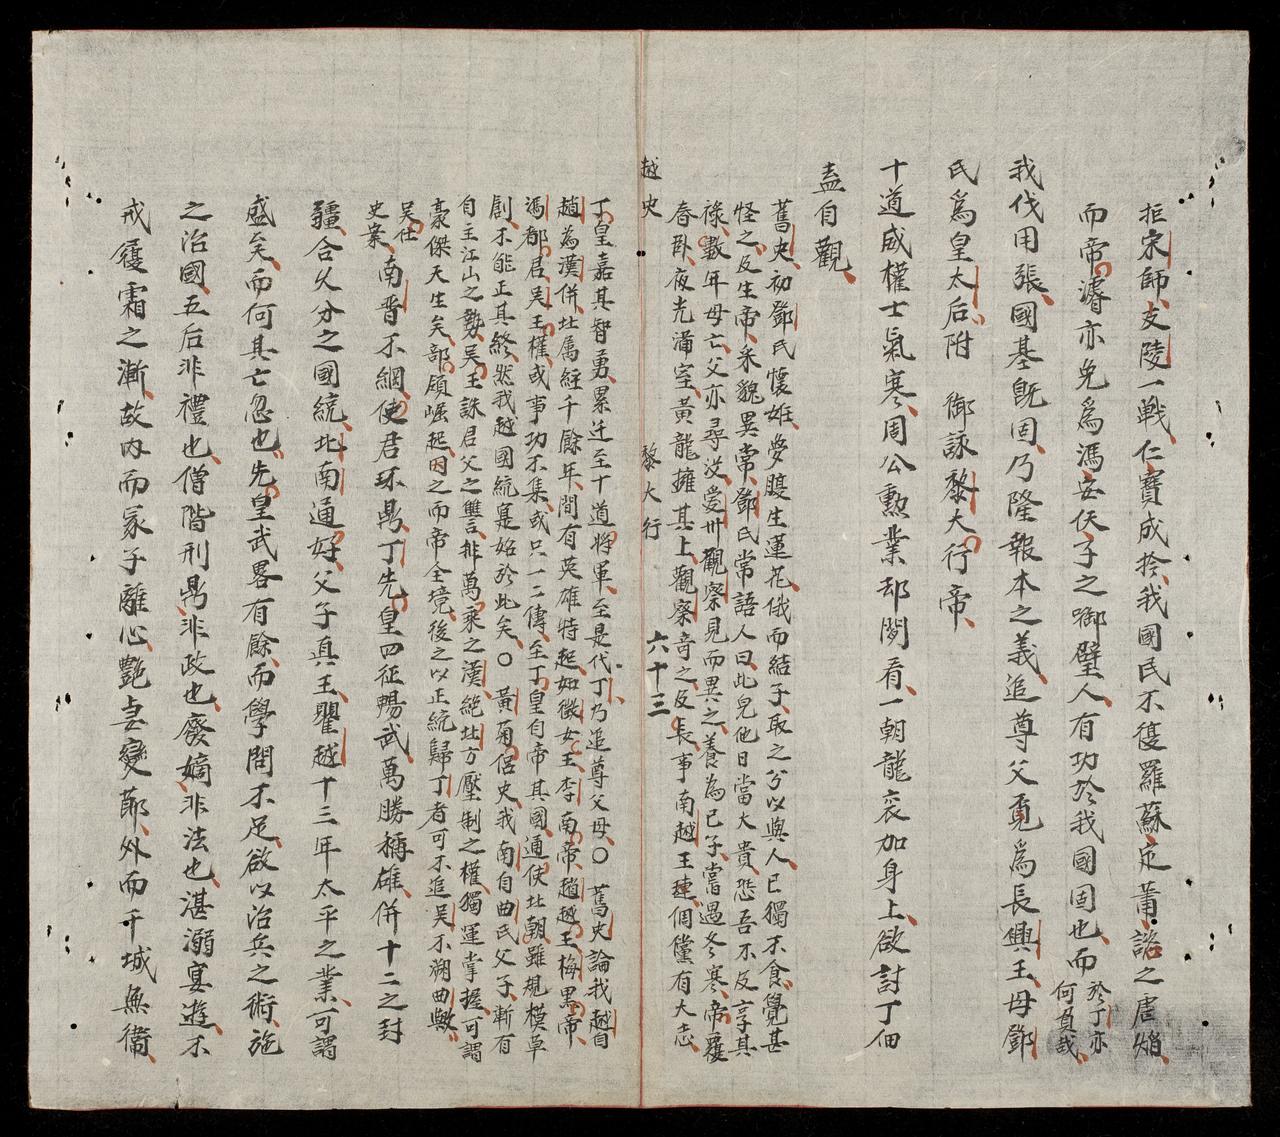 拒宋師支陵一戰仁寶成擒我國民不復羅蘇定莆諮之唐焰
而帝濬亦免爲馮安伕子之啣璧人有功於我國固也而於丁亦何負哉
我伐用張國基既固乃隆報本之義追尊父覔爲長興王母鄧
氏爲皇太后附 御詠黎大行帝
十道威權士氣寒周公勲業却閒看一朝龍衮加身上欲討丁佃
盍自觀
舊史初鄧氏懷姙夢腹生蓮花俄而結子取之分以與人已獨不食覺甚
怪之及生帝釆貌異常鄧氏常語人曰此兒他日當大貴恐吾不及享其
祿數年母亡父亦尋沒愛州觀察見而異之養為已子嘗遇冬寒帝覆
舂卧夜光滿室黃龍擁其上觀察竒之及長事南越王璉倜儻有大志
越史 黎大行 六十三
丁皇嘉其智勇累迁至十道將軍至是代丁乃追尊父母〇 舊史論我越自
趙為漢併北属經千餘年間有英雄特起如徵女王李南帝趙越王梅黑帝
馮都君吳王權或事功不集或只一二傳至丁皇自帝其國通使北朝雖規模草
創不能正其終然我越國統寔始於此矣〇 黃菊侶史我南自曲氏父子漸有
自主江山之勢吳王誅君父之讐排萬乘之漢絶北方壓制之權獨運掌握可謂
豪傑天生矣部領崛起因之而帝全境後之以正統歸丁者可不追吳不溯曲歟
吳仕史案南晋不綱使君环鼎丁先皇四征暢武萬勝稱雄併十二之封
疆合乆分之國統北南通好父子真王瞿越十三年太平之業可謂
盛矣而何其亡忽也先皇武畧有餘而學問不足欲以治兵之術施
之治國五后非禮也僧階刑鼎非政也廢嫡非法也湛溺宴遊不
戒履霜之漸故內而冢子離心艷妻變莭外而千城無衞